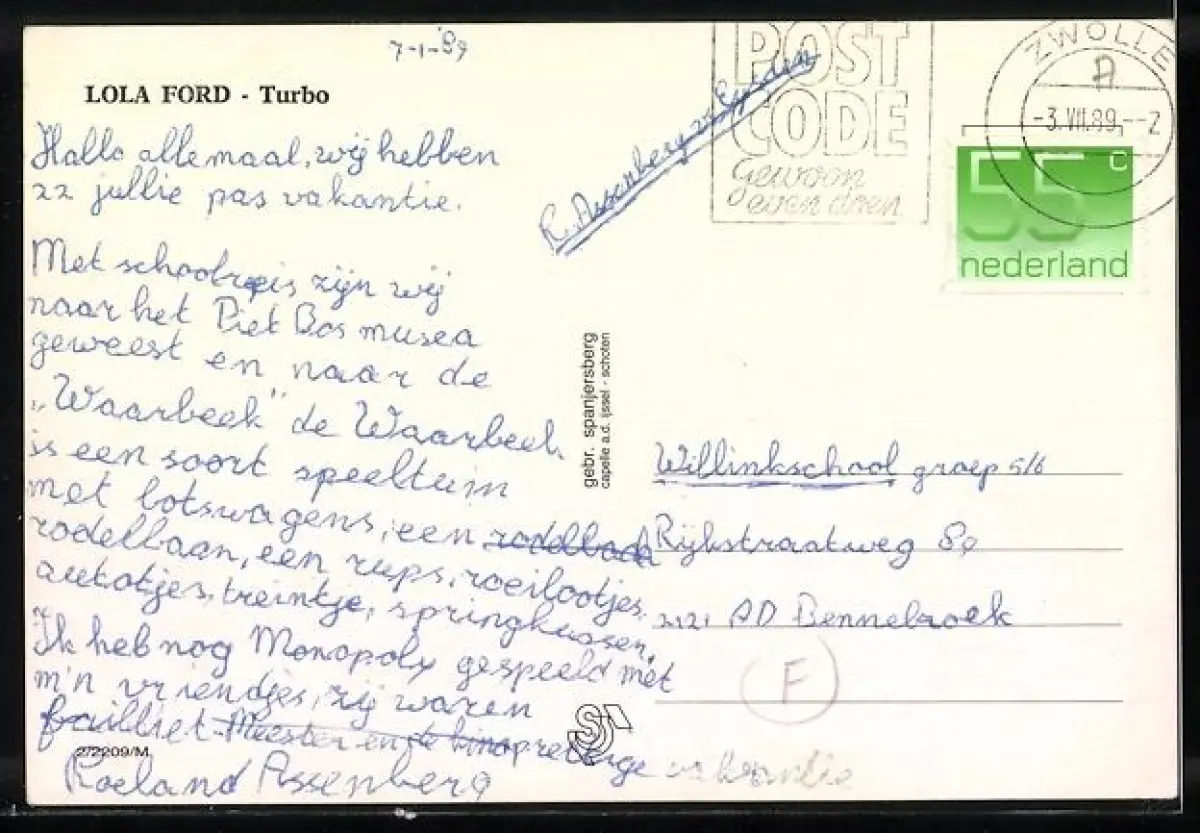 7-1-'89
LOLA FORD - Turbo
Hallo allemaal, wij hebben
22 jullie pas vakantie.
Met schoolreis zijn wij
naar het Piet Bos musea
geweest en naar de
„Waarbeek" de Waarbeek
is een soort speeltuin
met botswagens, een
rodelbaan, een rups, roeibootjes,
autotjes, treintje, springkussen,
Ik heb nog Monopoly gespeeld met
m'n vriendjes, zij waren
failliet. Meester en de prettige vakantie
Roeland Assenberg
R. Assenberg
POST
CODE
Gewoon
even doen
ZWOLLE
A
-3.VII.89.--2
55 c
nederland
gebr. spanjersberg
capelle a.d. ijssel - schoten
Willinkschool groep 5/6
Rijkstraatweg 89
2121 AD Bennebroek
F
S
2/2209/M